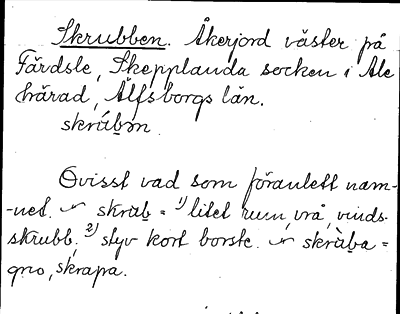 Skrubben. Åkerjord väster på
Färdsle, Skepplanda socken i Ale
härad, Älfsborgs län.
skrúb̬ən
Ovisst vad som föranlett nam-
-net. skrub̬ = 1) litet rum, vrå, vinds-
skrubb, 2) styv kort borste. skrùb̬a =
gno, skrapa.